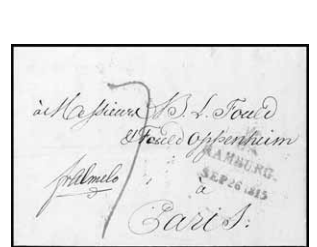 à Messieurs B. L. Fould
& Fould Oppenheim
HAMBURG.
SEP 26 1815
fr Almelo
à
Paris.